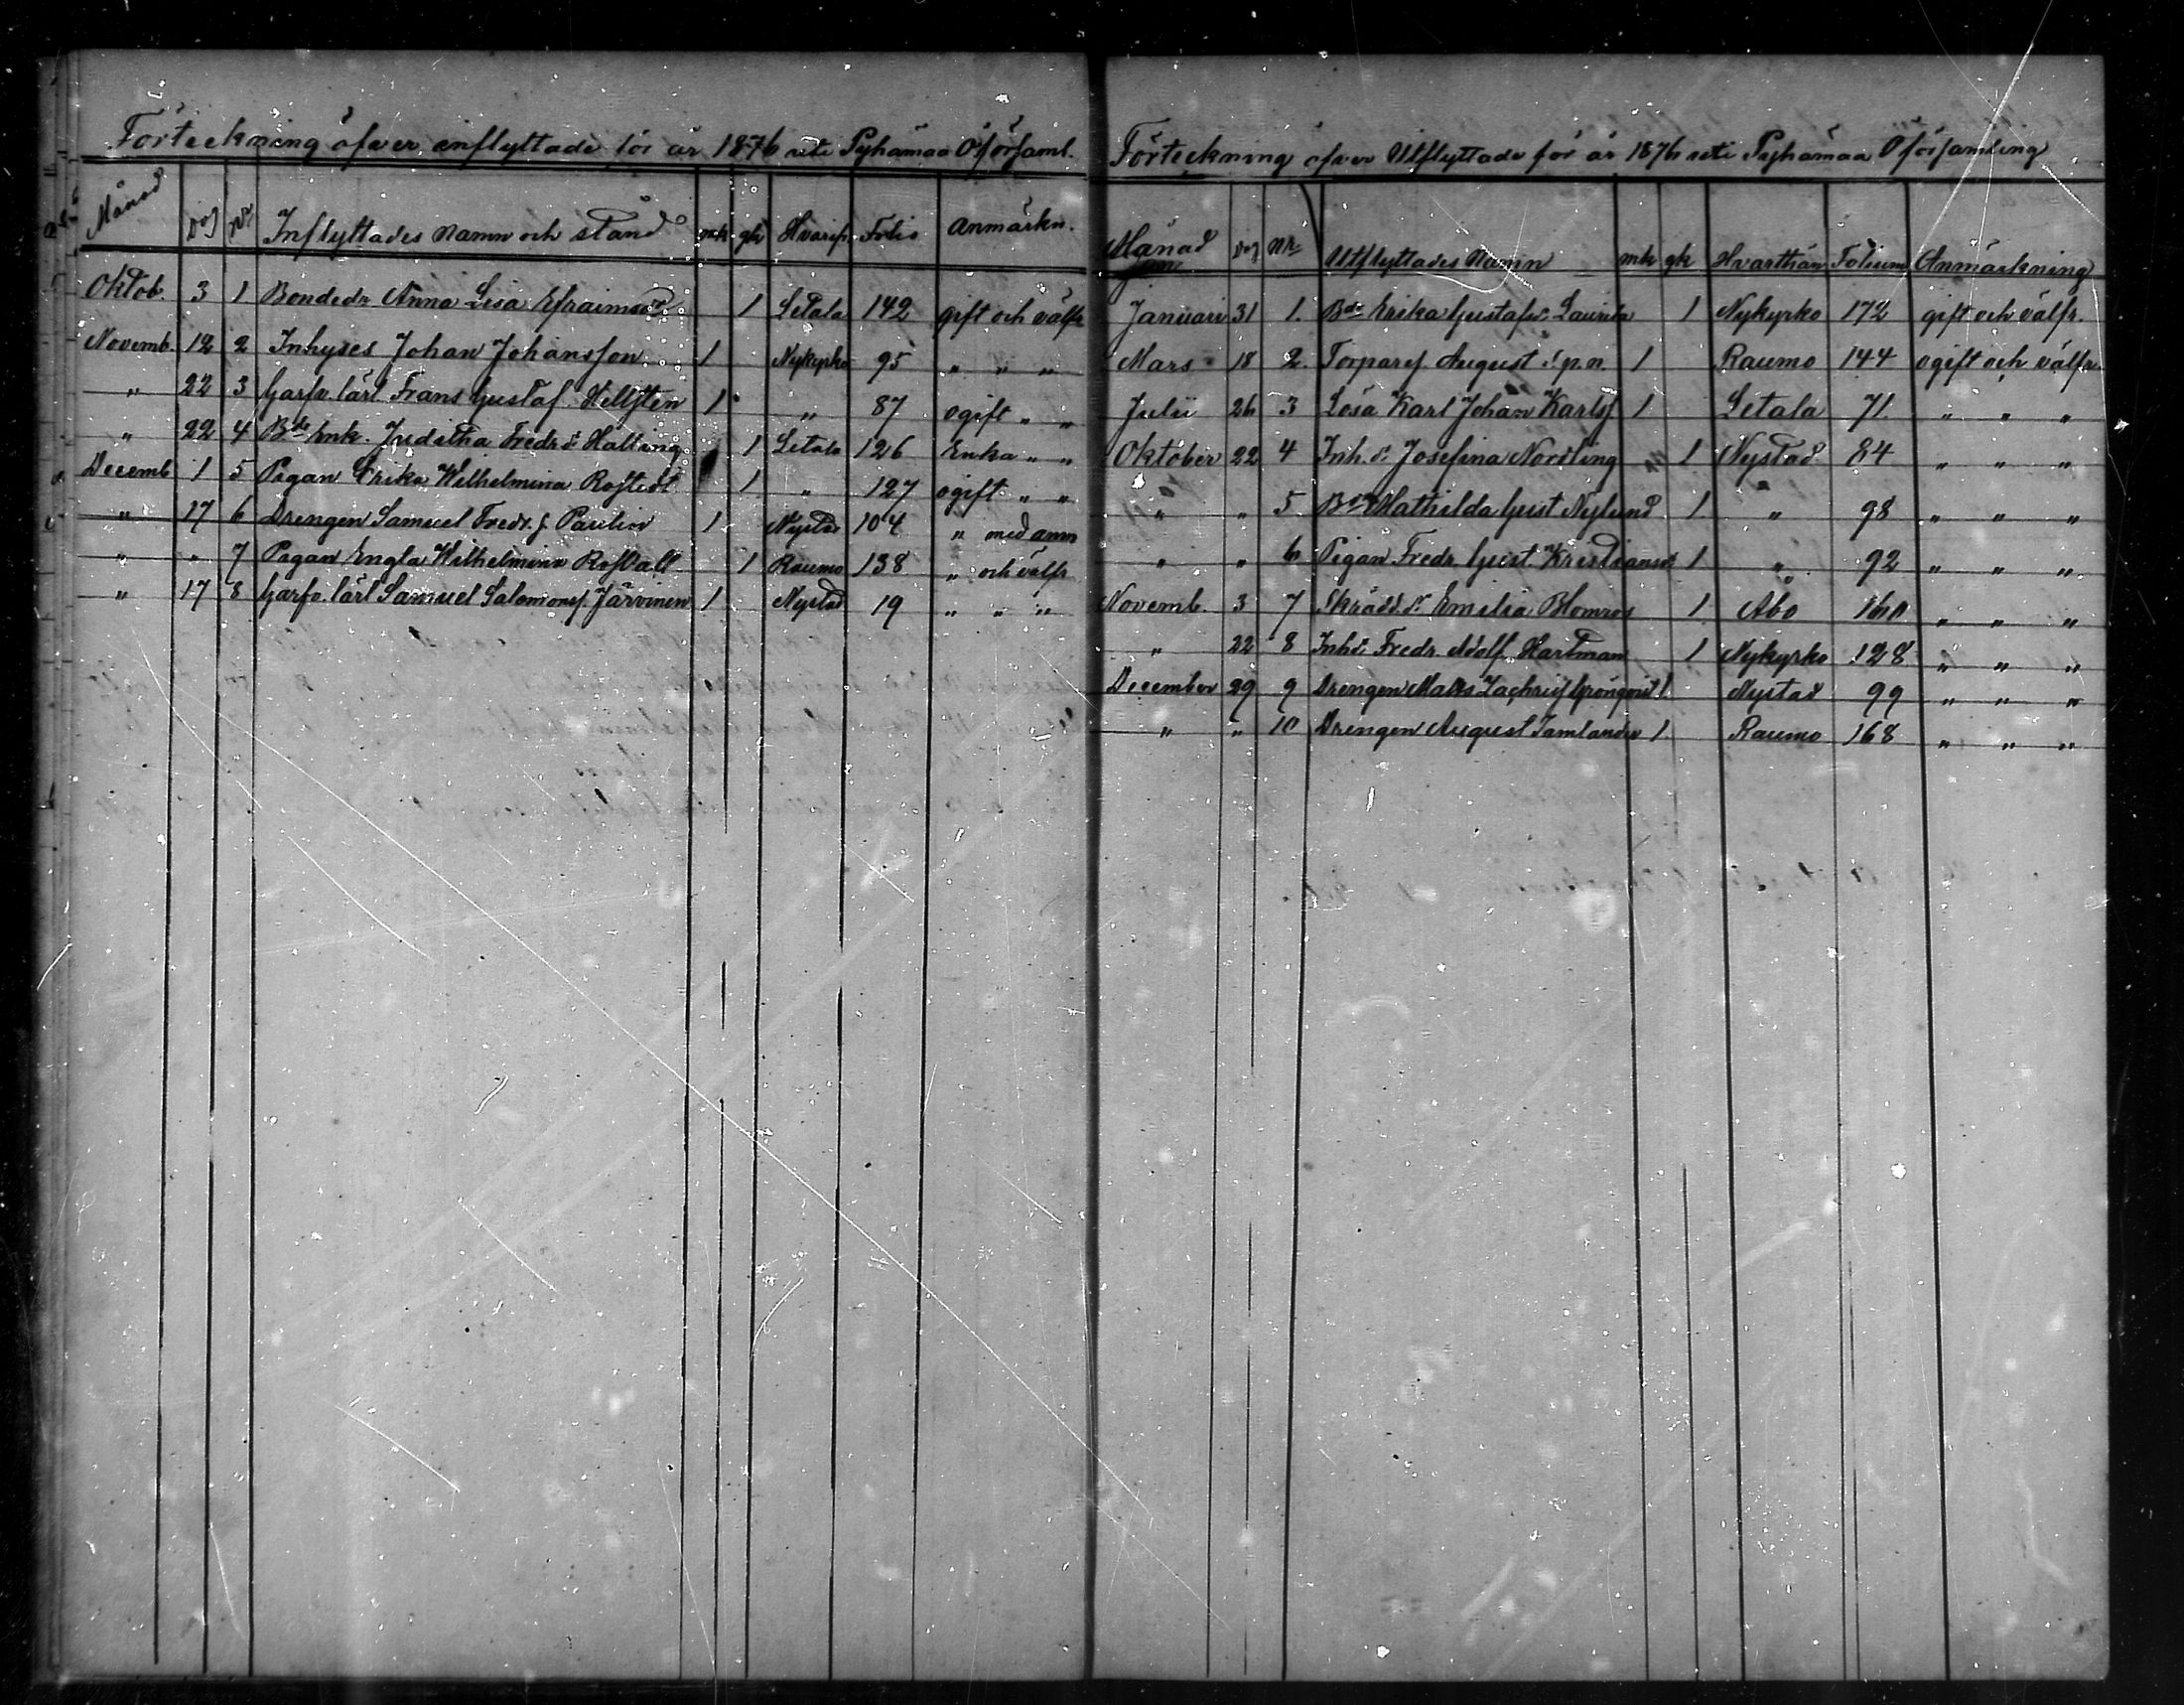 Förteckning öfver inflyttade för år 1876 uti Pyhämaa Ö förs̈aml.
Månad Dag Nr Inflyttades Namn och stånd mk gk Hvarifr. Folio Anmärkn.
Oktob. 3 1 Bondedr Anna Lisa Efraimsdr 1 Letala 142 gift och välfr
Novemb. 12 2 Inhyses Johan Johansson 1 Nykyrko 95 " " "
" 22 3 Garfv. lärl Frans Gustaf Hellsten 1 " 87 ogift " "
" 22 4 Bde Enk. Juditha Fredrsdr Halling 1 Letala 126 Enka " "
Decemb 1 5 Pigan Erika Wilhelmina Rostedt 1 " 127 ogift " "
" 17 6 Drengen Samuel Fredr. s. 1 Nystad 104 " med anm
" " 7 Pigan Engla Wilhelmina Rosvall 1 Raumo 138 " och välfr
" 17 8 Garfv. lärl Samuel Salomonss. Järvinen 1 Nystad 19 " " "
Förteckning öfver Utflyttade för år 1876 uti Pyhämaa Ö församling
Månad Dag Nr Utflyttades Namn mk gk Hvarthän Folium Anmärkning
Januari 31 1. Bdr Erika Gustafsdr 1 Nykyrko 172 gift och välfr.
Mars 18 2. Torpares. August i. p. n. 1 Raumo 144 ogift och välfr.
Julii 26 3 Lösa Karl Johan Karlss 1 Letala 71. " " "
Oktober 22 4 Inh. dr Josefina Nordling 1 Nystad 84 " " "
" " 5 Bdr Mathilda Gust Nylund 1 " 98 " " "
" " 6 Pigan Fredr. Gust. Kristiansdr 1 " 92 " " "
Novemb. 3 7 Skrädd. dr Emilia Blomros 1 Åbo 160 " " "
" 22 8 Fredr. Adolf. Hartman 1 Nykyrko 128 " " "
December 29 9 Drengen Mats Zachriss Grönqvist 1. Nystad 99 " " "
" " 10 Drengen August 1 Raumo 168 " " "